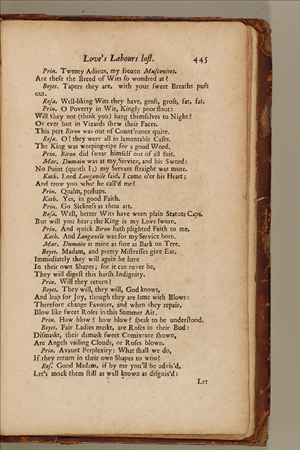 Love's Labours lost. 445
Prin. Twenty Adieus, my frozen Muscovites.
Are these the Breed of Wits so wondred at?
Boyet. Tapers they are, with your sweet Breaths puft
out.
Rosa. Well-liking Wits they have, gross, gross, fat, fat.
Prin. O Poverty in Wit, Kingly poor flout:
Will they not (think you) hang themselves to Night?
Or ever but in Vizards shew their Faces.
This pert Biron was out of Count'nance quite.
Rosa. O! they were all in lamentable Cases.
The King was weeping-ripe for a good Word.
Prin. Biron did swear himself out of all suit.
Mar. Dumain was at my Service, and his Sword:
No Point (quoth I;) my Servant straight was mute.
Kath. Lord Longavile said, I came o'er his Heart;
And trow you what he call'd me?
Prin. Qualm, perhaps.
Kath. Yes, in good Faith.
Prin. Go Sickness as thou art.
Rosa. Well, better Wits have worn plain Statute Caps.
But will you hear; the King is my Love sworn.
Prin. And quick Biron hath plighted Faith to me.
Kath. And Longavile was for my Service born.
Mar. Dumain is mine as sure as Bark on Tree.
Boyet. Madam, and pretty Mistresses give Ear,
Immediately they will again be here
In their own Shapes; for it can never be,
They will digest this harsh Indignity.
Prin. Will they return?
Boyet. They will, they will, God knows,
And leap for Joy, though they are lame with Blows:
Therefore change Favours, and when they repair,
Blow like sweet Roses in this Summer Air.
Prin. How blow? how blow? speak to be understood.
Boyet. Fair Ladies maskt, are Roses in their Bud:
Dismaskt, their damask sweet Comixture shown,
Are Angels vailing Clouds, or Roses blown.
Prin. Avaunt Perplexity: What shall we do,
If they return in their own Shapes to woo?
Ros. Good Madam, if by me you'll be advis'd,
Let's mock them still as well known as disguis'd:
Let